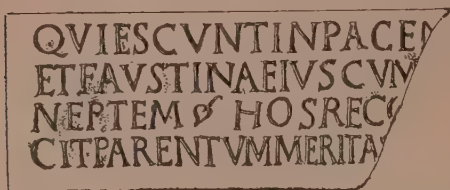 QVIESCVNTINPACEM
ETFAVSTINAEIVSCVM
NEPTEM HOSRECC
CIT·PARENTVMMERITA